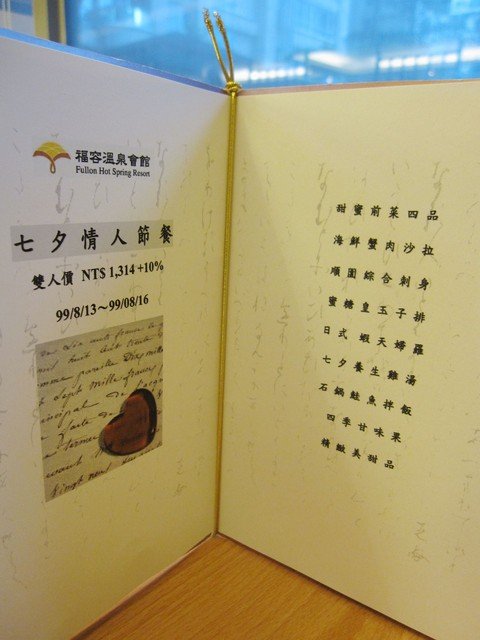 福容溫泉會館
Fullon Hot Spring Resort
七夕情人節餐
雙人價 NT$ 1,314 +10%
99/8/13～99/08/16
甜蜜前菜四品
海鮮蟹肉沙拉
順圍綜合刺身
蜜糖皇玉子排
日式蝦天婦羅
七夕養生雞湯
石鍋鮭魚拌飯
四季甘味果
精緻美甜品